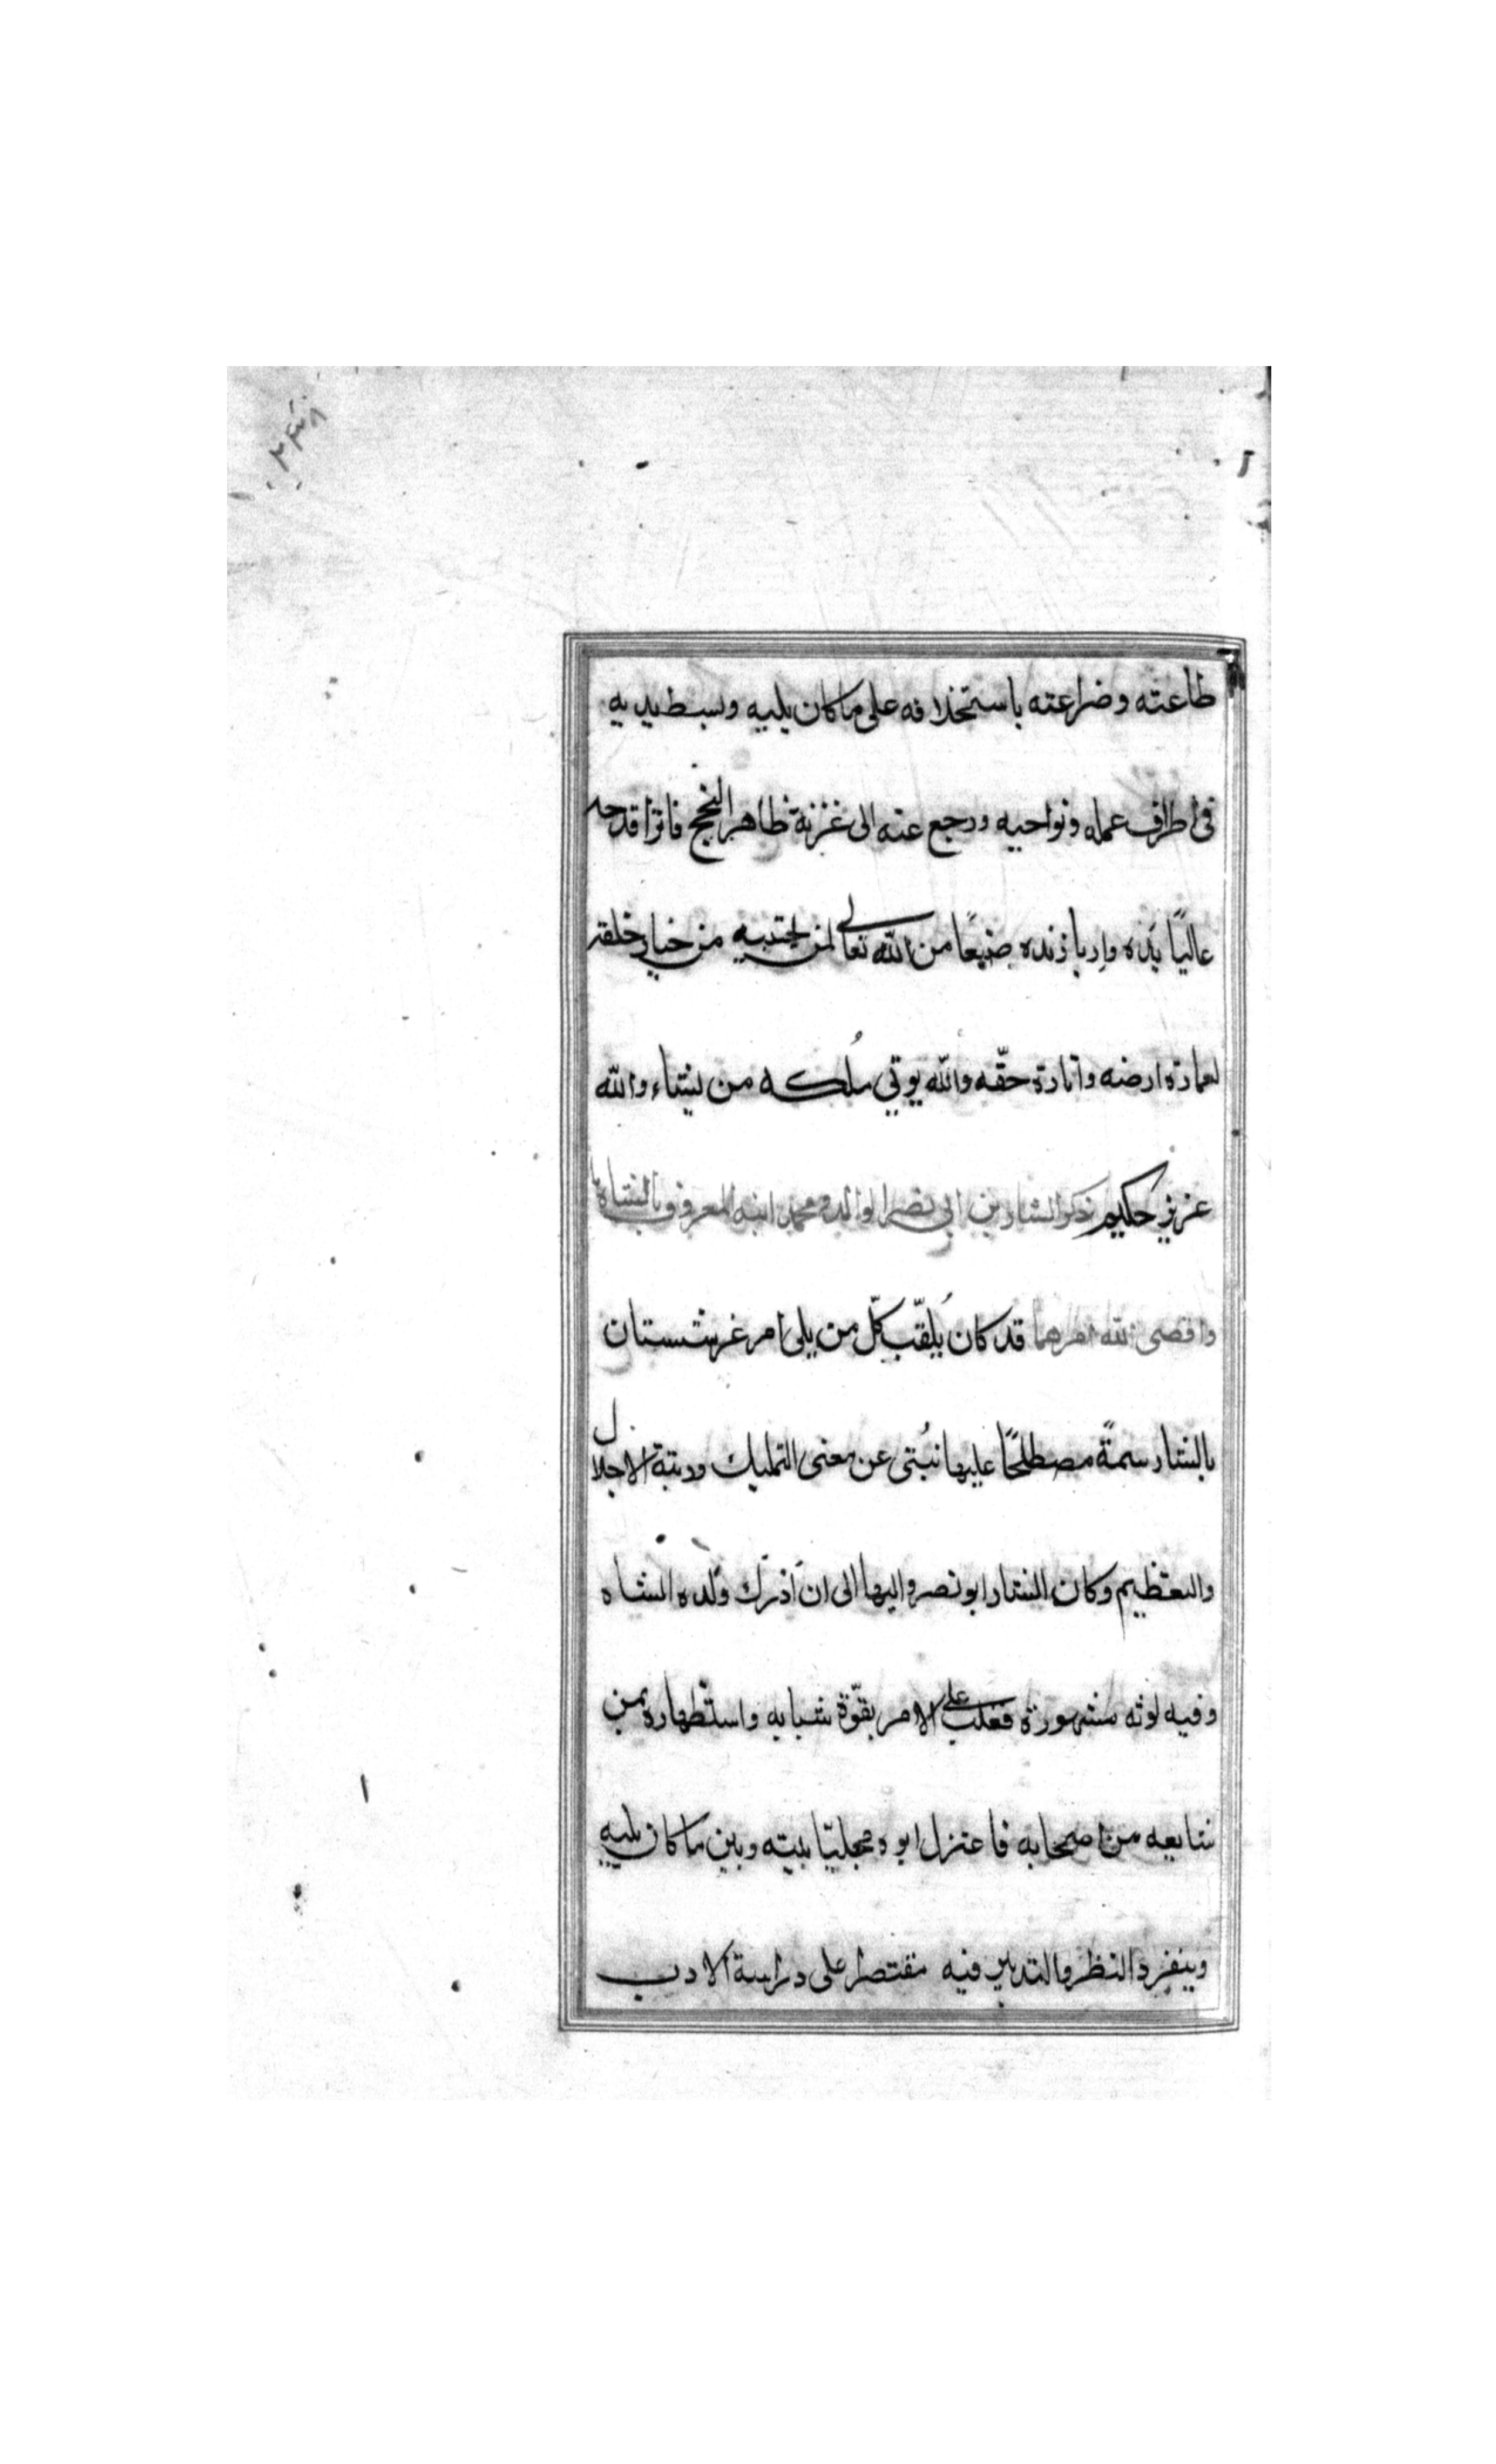 ٢٤٨
طاعته وضراعته باستخلافه على ما كان يليه وبسط يديه
فى اطراف عمله ونواحيه ورجع عنه الى غزنة ظاهر النجح فائزا قدحه
عاليًا يَده واريا زنده صنيعًا من الله تعالى لمن يجتبيه من خيار خلقه
لعمارة ارضه وانارة حقّه والله يوتي مُلكه من يشاء والله
عزيز حكيم ذكر الشارين ابي نصر الوالد ومحمد ابنه المعروف بالشاه
وا قضى الله امرهما قد كان يُلقّب كلّ من يلى امر غرشستان
بالشار سمةً مصطلحًا عليها تُنبئ عن معنى التمليك ورتبة الاجلال
والتعظيم وكان الشار ابو نصر واليها الى ان اَدْرَك وَلده الشاه
وفيه لوثه مشهورة فغلب على الامر بقوّة شبابه واستظهاره بمن
شايعه من اصحابه فاعتزل ابوه مخليًا بينه وبين ما كان يليه
وينفرد النظر والتدبير فيه مقتصرا على دراسة الادب